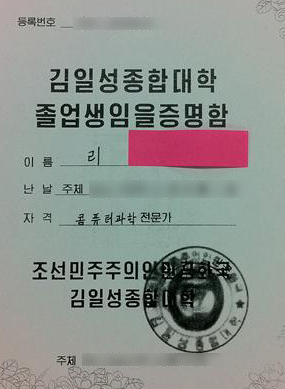 등록번호
김일성종합대학
졸업생임을증명함
이 름 리
난 날 주체
자 격 콤퓨터과학전문가
조선민주주의인민공화국
김일성종합대학
주체